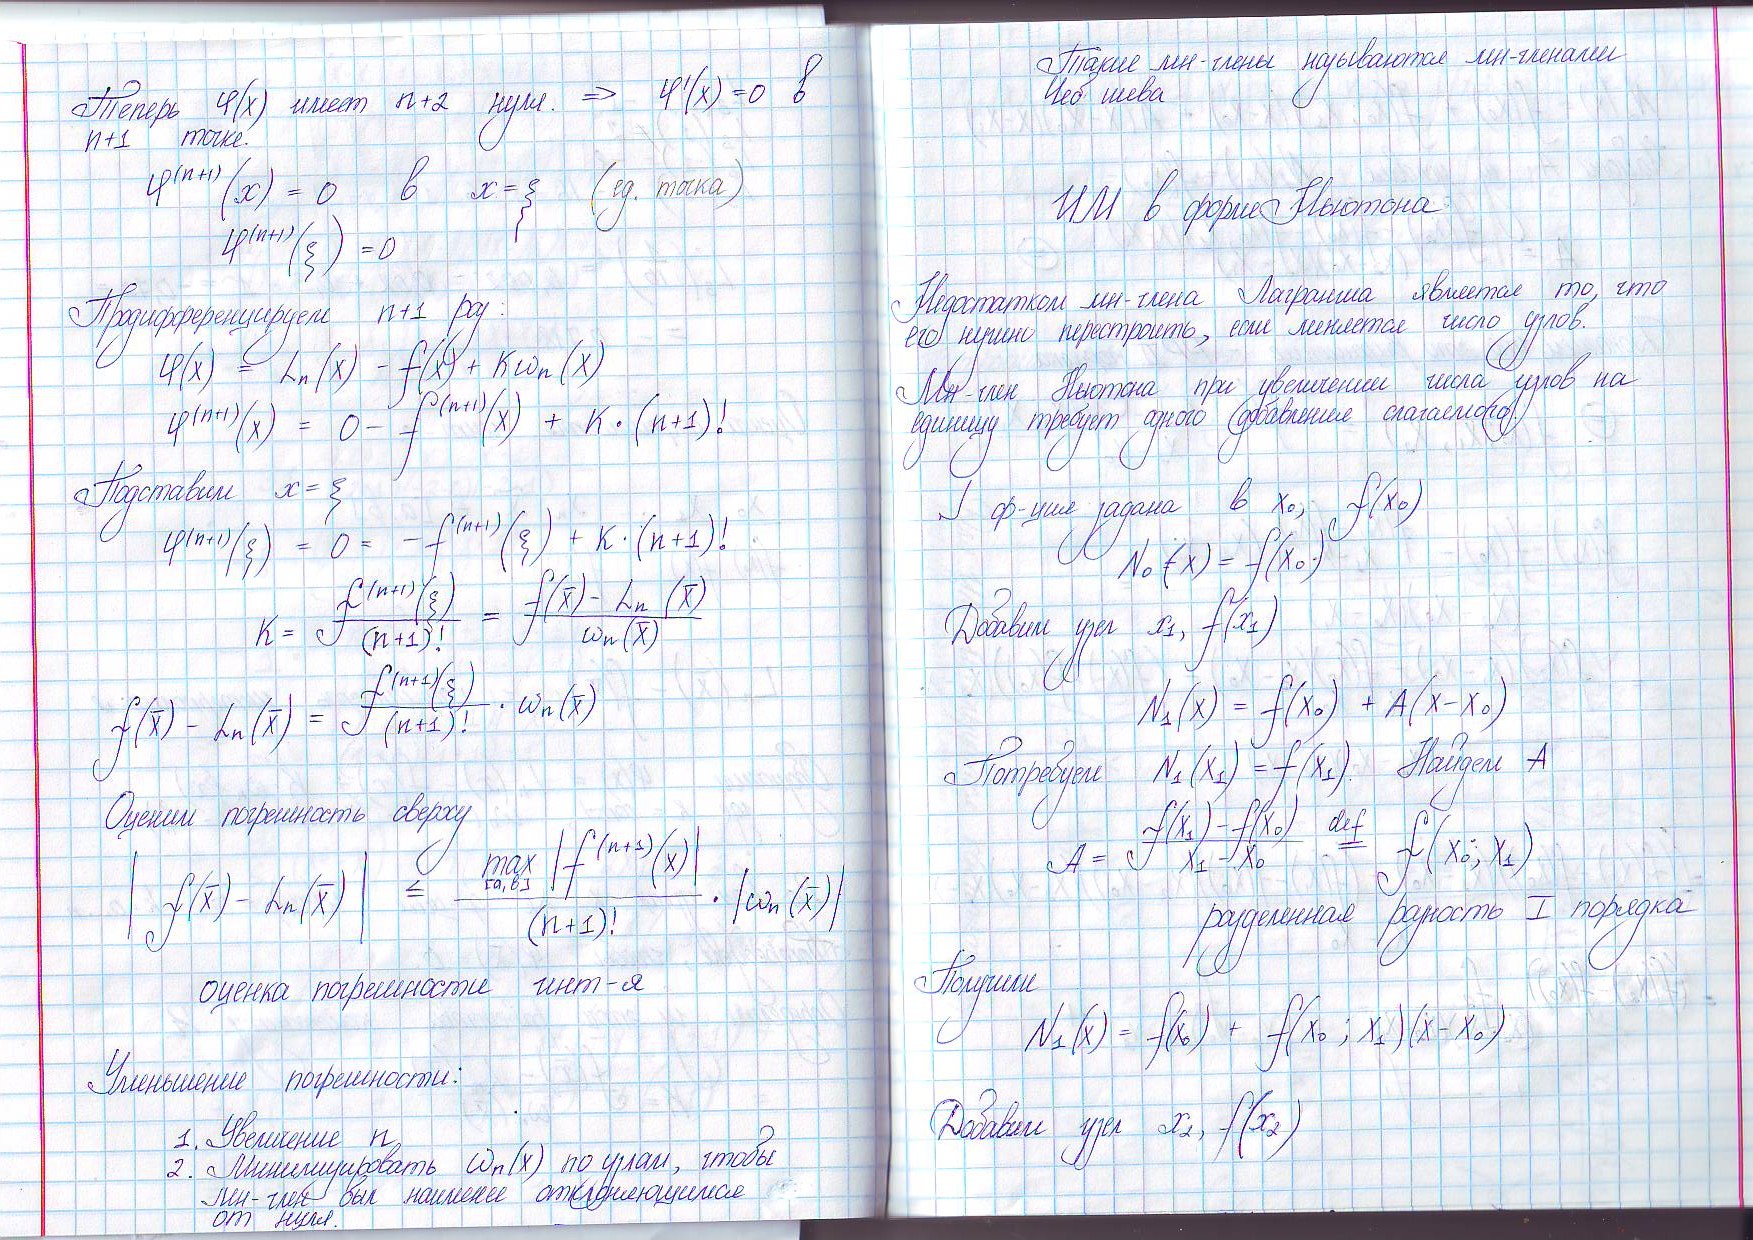 Теперь φ(x) имеет n+2 нуля. ⇒ φ'(x) = 0 в
n+1 точке.
φ⁽ⁿ⁺¹⁾(x) = 0 в x = ξ (ед. точка)
φ⁽ⁿ⁺¹⁾(ξ) = 0
Продифференцируем n+1 раз:
φ(x) = Lₙ(x) - f(x) + Kωₙ(x)
φ⁽ⁿ⁺¹⁾(x) = 0 - f⁽ⁿ⁺¹⁾(x) + K·(n+1)!
Подставим x = ξ
φ⁽ⁿ⁺¹⁾(ξ) = 0 = -f⁽ⁿ⁺¹⁾(ξ) + K·(n+1)!
K = f⁽ⁿ⁺¹⁾(ξ)/(n+1)! = (f(x̄) - Lₙ(x̄))/ωₙ(x̄)
f(x̄) - Lₙ(x̄) = f⁽ⁿ⁺¹⁾(ξ)/(n+1)! · ωₙ(x̄)
Оценим погрешность сверху
|f(x̄) - Lₙ(x̄)| ≤ max[a,в] |f⁽ⁿ⁺¹⁾(x)|/(n+1)! · |ωₙ(x̄)|
оценка погрешности инт-я
Уменьшение погрешности:
1. Увеличение n
2. Минимизировать ωₙ(x) по узлам, чтобы
мн-член был наименее отклоняющимся
от нуля.
Такие мн-члены называются мн-членами
Чебышева
ИМ в форме Ньютона
Недостатком мн-члена Лагранжа является то, что
его нужно перестроить, если меняется число узлов.
Мн-член Ньютона при увеличении числа узлов на
единицу требует одного (добавления слагаемого).
] ф-ция задана в x₀, f(x₀)
N₀(x) = f(x₀)
Добавим узел x₁, f(x₁)
N₁(x) = f(x₀) + A(x-x₀)
Потребуем N₁(x₁) = f(x₁). Найдем A
A = (f(x₁) - f(x₀))/(x₁ - x₀) def= f(x₀; x₁)
разделенная разность I порядка
Получили
N₁(x) = f(x₀) + f(x₀; x₁)(x-x₀)
Добавим узел x₂, f(x₂)